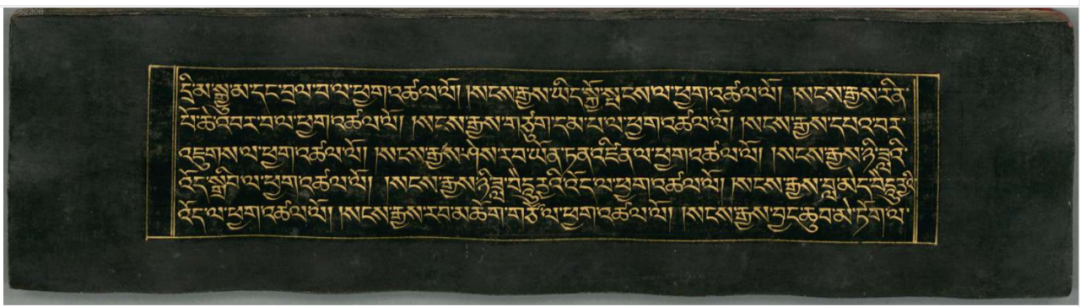 དྲི་མ་སྒྱུ་མ་དང་བྲལ་བ་ལ་ཕྱག་འཚལ་ལོ། །སངས་རྒྱས་ཡིད་སྐྱོ་སྤངས་ལ་ཕྱག་འཚལ་ལོ། །སངས་རྒྱས་རིན་
པོ་ཆེ་འབར་བ་ལ་ཕྱག་འཚལ་ལོ། །སངས་རྒྱས་གཙུག་དམ་པ་ལ་ཕྱག་འཚལ་ལོ། །སངས་རྒྱས་དཔའ་བར་
འཇུགས་ལ་ཕྱག་འཚལ་ལོ། །སངས་རྒྱས་ཤེས་རབ་ཡོན་ཏན་འཛིན་ལ་ཕྱག་འཚལ་ལོ། །སངས་རྒྱས་ཉི་ཟླའི་
འོད་སྒྲོན་ལ་ཕྱག་འཚལ་ལོ། །སངས་རྒྱས་ཉི་ཟླ་བཻ་ཌཱུརྱའི་འོད་ལ་ཕྱག་འཚལ་ལོ། །སངས་རྒྱས་བླ་མེད་བཻ་ཌཱུརྱའི་
འོད་ལ་ཕྱག་འཚལ་ལོ། །སངས་རྒྱས་རབ་མཆོག་གཙོ་ལ་ཕྱག་འཚལ་ལོ། །སངས་རྒྱས་བྱང་ཆུབ་མེ་ཏོག་ལ་